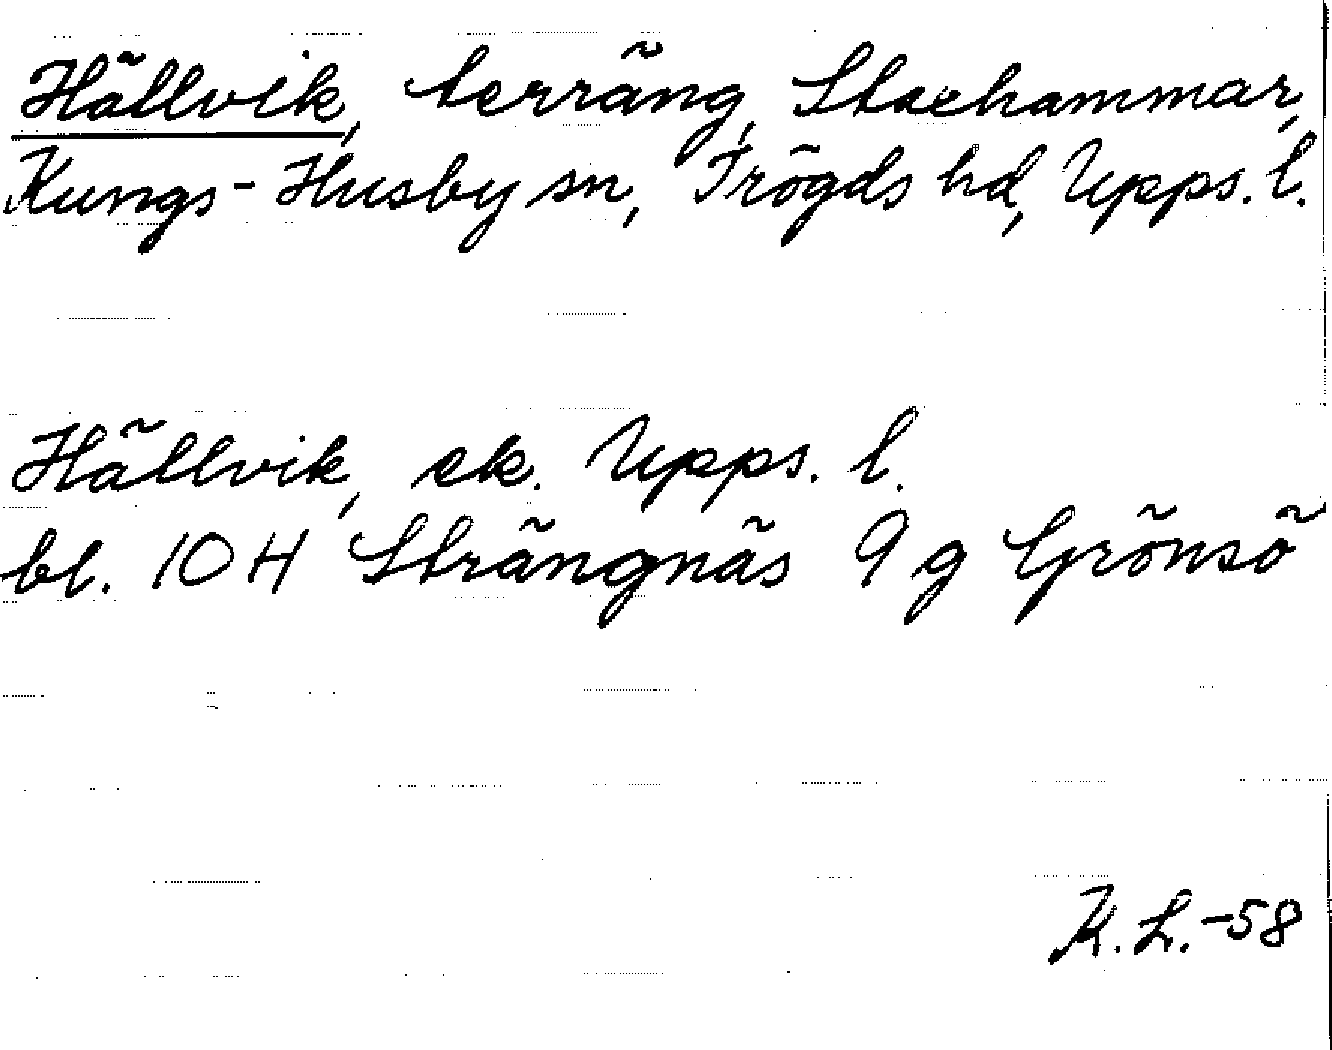 Hällvik, terräng, Stachammar,
Kungs-Husby sn, Trögds hd, Upps. l.
Hällvik, ek. Upps. l.
bl. 10 H Strängnäs 9 g Grönsö
K. L. -58